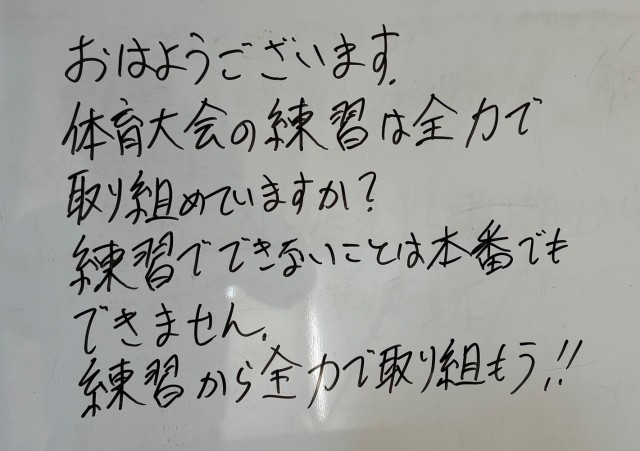 おはようございます.
体育大会の練習は全力で
取り組めていますか?
練習でできないことは本番でも
できません.
練習から全力で取り組もう!!